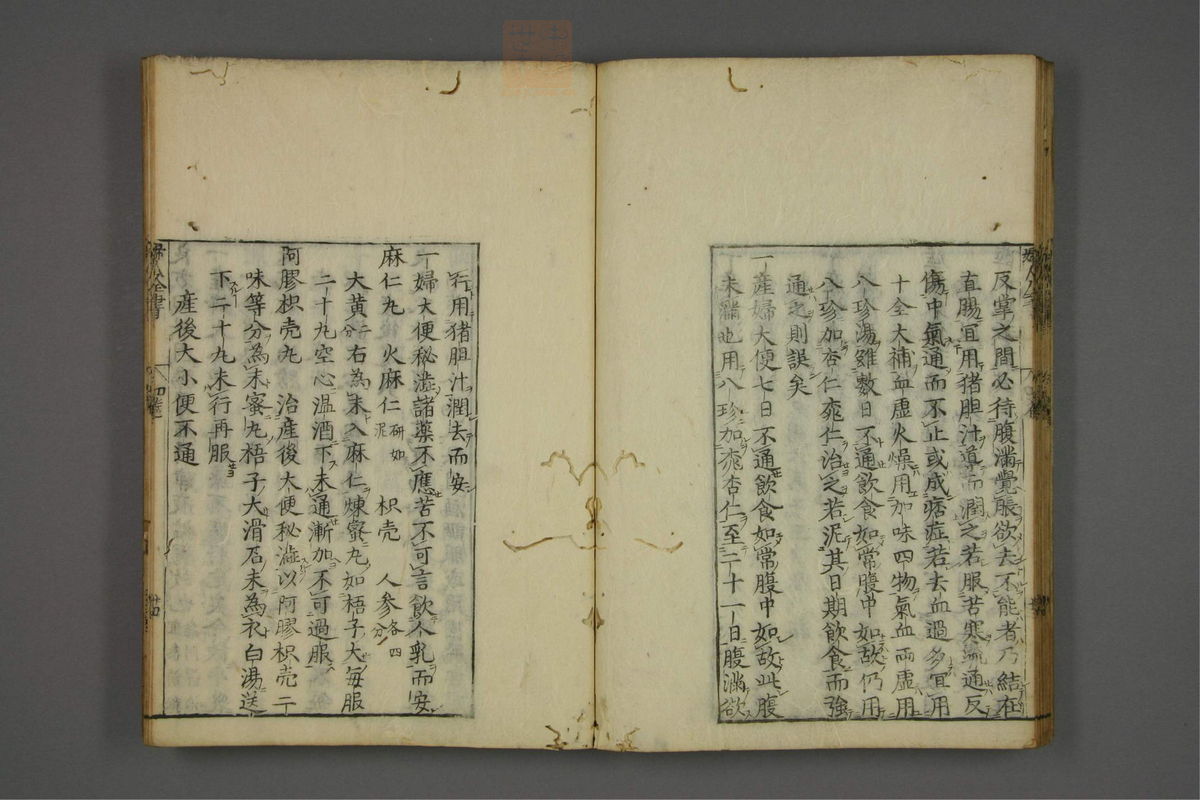 反掌之間必待腹滿覺脹欲去不能者乃結在
直腸宜用猪胆汁道而潤之若服苦寒疏通反
傷中氣通而不止或成痞症若去血過多宜用
十全大補血虛火燥用加味四物氣血兩虛用
八珍湯雖數日不通飲食如常腹中如故仍用
八珍加杏仁桃仁治之若泥其日期飲食而強
通之則誤矣
一産婦大便七日不通飲食如常腹中如故此腹
未滿也用八珍加桃杏仁至二十一日腹滿欲
行用猪胆汁潤去而安
一婦大便秘澁諸藥不應苦不可言飲人乳而安
麻仁丸 火麻仁研如泥 枳売 人參各四分
大黄二分 右為末入麻仁煉蜜丸如梧子大毎服
二十丸空心温酒下未通漸加不可過服
阿膠枳売丸 治産後大便秘澁以阿膠枳売二
味等分為末蜜丸梧子大滑石末為衣白湯送
下二十丸未行再服
産後大小便不通